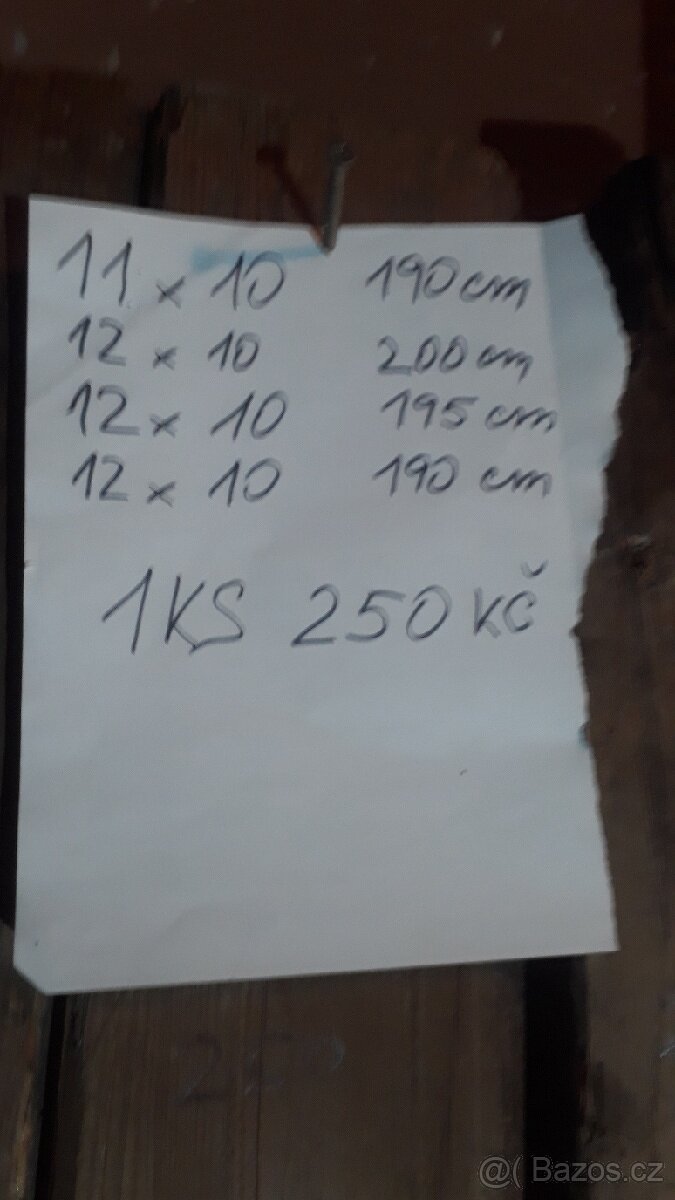 11 x 10 190 cm
12 x 10 200 cm
12 x 10 195 cm
12 x 10 190 cm
1KS 250 Kč
@( Bazos.cz